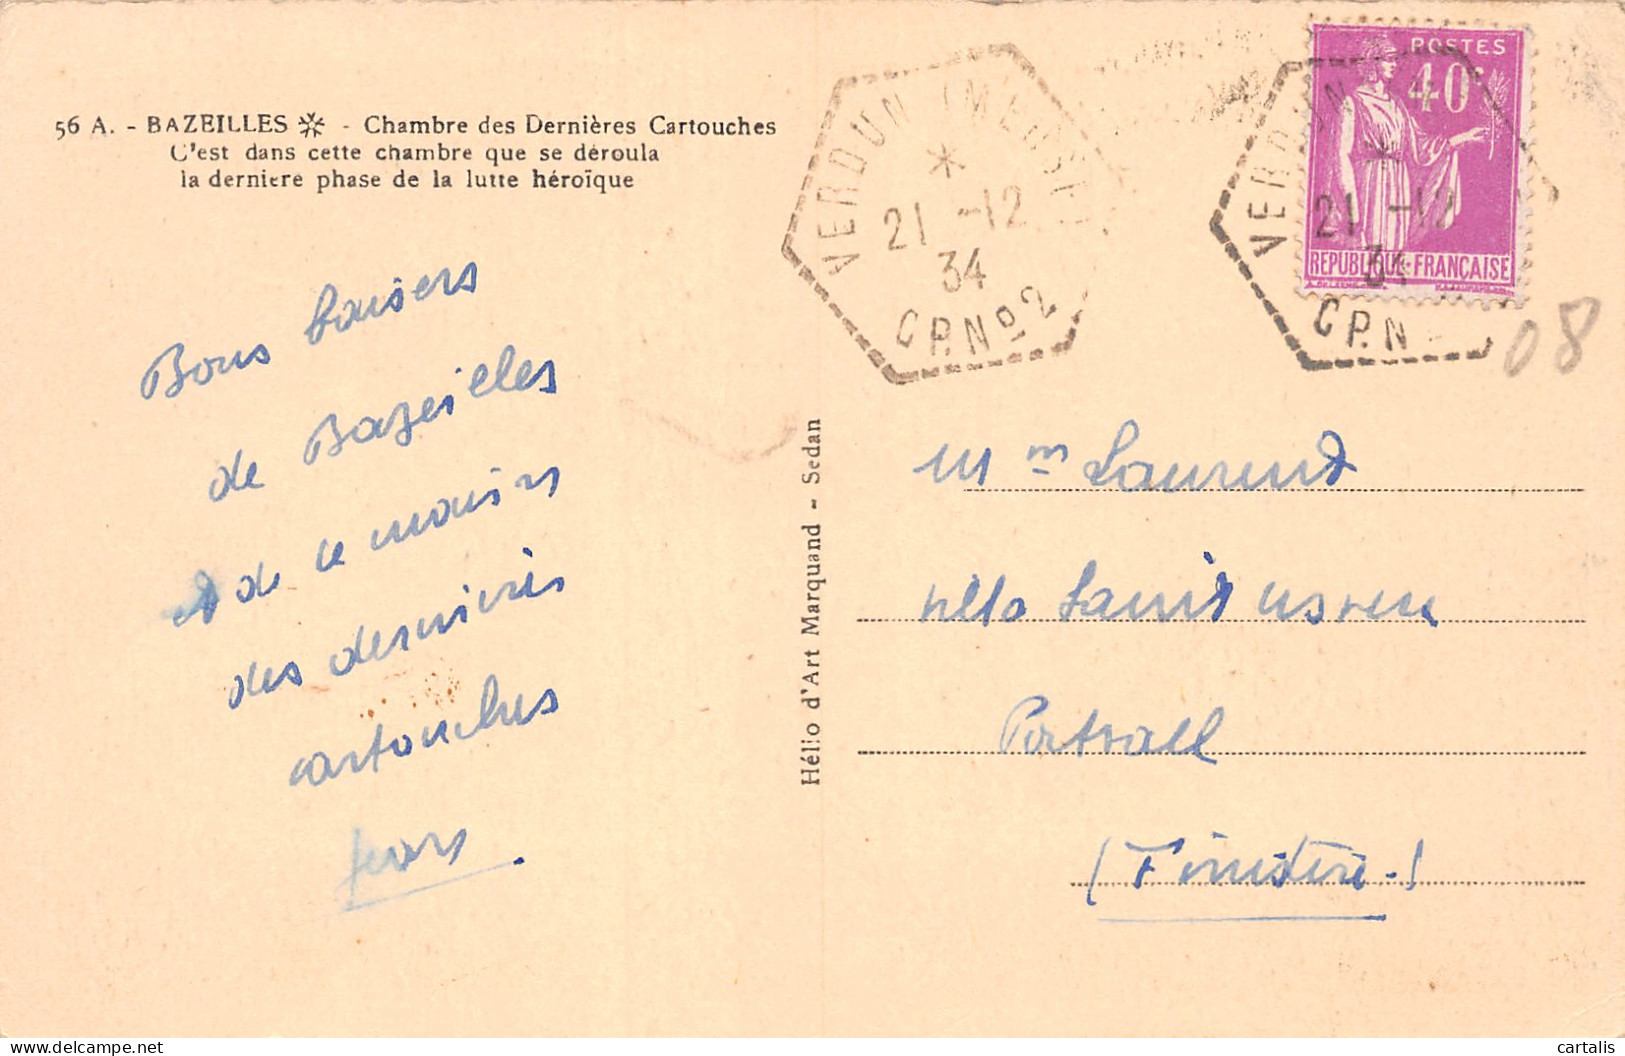 56 A. - BAZEILLES - Chambre des Dernières Cartouches
C'est dans cette chambre que se déroula
la dernière phase de la lutte héroïque
Bons baisers
de Bazeilles
et de la maison
des dernières
cartouches
VERDUN (MEUSE)
21 -12
34
C.P. No 2
POSTES
40c
REPUBLIQUE FRANÇAISE
VERDUN
21 -12
34
C.P. N
08
Hélio d'Art Marquand - Sedan
Mme Laurent
Villa
Portsall
(Finistère.)
cartalis